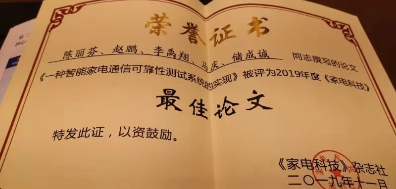 荣誉证书
陈丽芬、赵鹏、李禹翔、马庆、储成诚 同志撰写的论文
《一种智能家电通信可靠性测试系统的实现》被评为2019年度《家电科技》
最佳论文
特发此证，以资鼓励。
《家电科技》杂志社
二〇一九年十一月